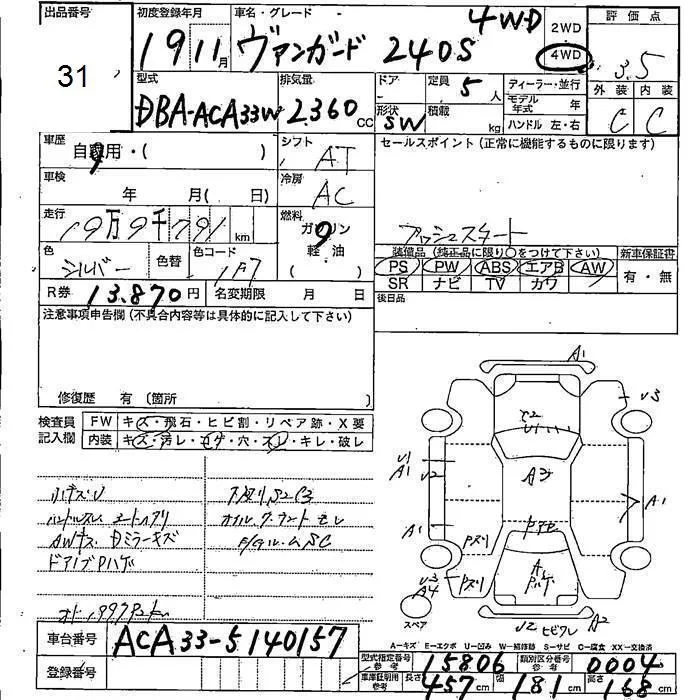 出品番号
31
初度登録年月
19 11月
車名・グレード
ヴァンガード 240S 4WD
2WD
4WD
評価点
3.5
外装 内装
C C
型式
DBA-ACA33W
排気量
2,360 CC
ドア
-
形状
SW
定員
5人
積載
kg
ディーラー・並行
モデル年式 年
ハンドル 左・右
車歴
自家用・( )
シフト
AT
セールスポイント(正常に機能するものに限ります)
車検
年 月( 日)
冷房
AC
走行
19万9千791km
燃料
ガソリン
軽・油
( )
アッシュスタート
色
シルバー
色替
色コード
1F7
装備品(純正品に限り○をつけて下さい)
新車保証書
PS PW ABS エアB AW
SR ナビ TV カワ
有・無
R券 13,870円
名変期限 月 日
後日品
注意事項申告欄(不具合内容等は具体的に記入して下さい)
修復歴 有 (箇所 )
検査員記入欄
FW キズ・飛石・ヒビ割・リペア跡・X要
内装 キズ・汚レ・コゲ・穴・スレ・キレ・破レ
小キズU
ハンドルスレ
AWキズ Dミラーキズ
ドアノブPハゲ
下廻りS2C3
A1
U3
A3
U1
A1
U2
A1
A1
Pズリ
Pズリ
U3
A4
Pハゲ
U2 ヒビワレ A2
スペア
A-キズ E-エクボ U-凹み W-補修跡 S-サビ C-腐食 XX-交換済
車台番号 ACA33-5140157
登録番号
型式指定番号 参考 15806
類別区分番号 参考 0004
車庫証明用 参考 長さ 457cm 幅 181cm 高さ 168cm